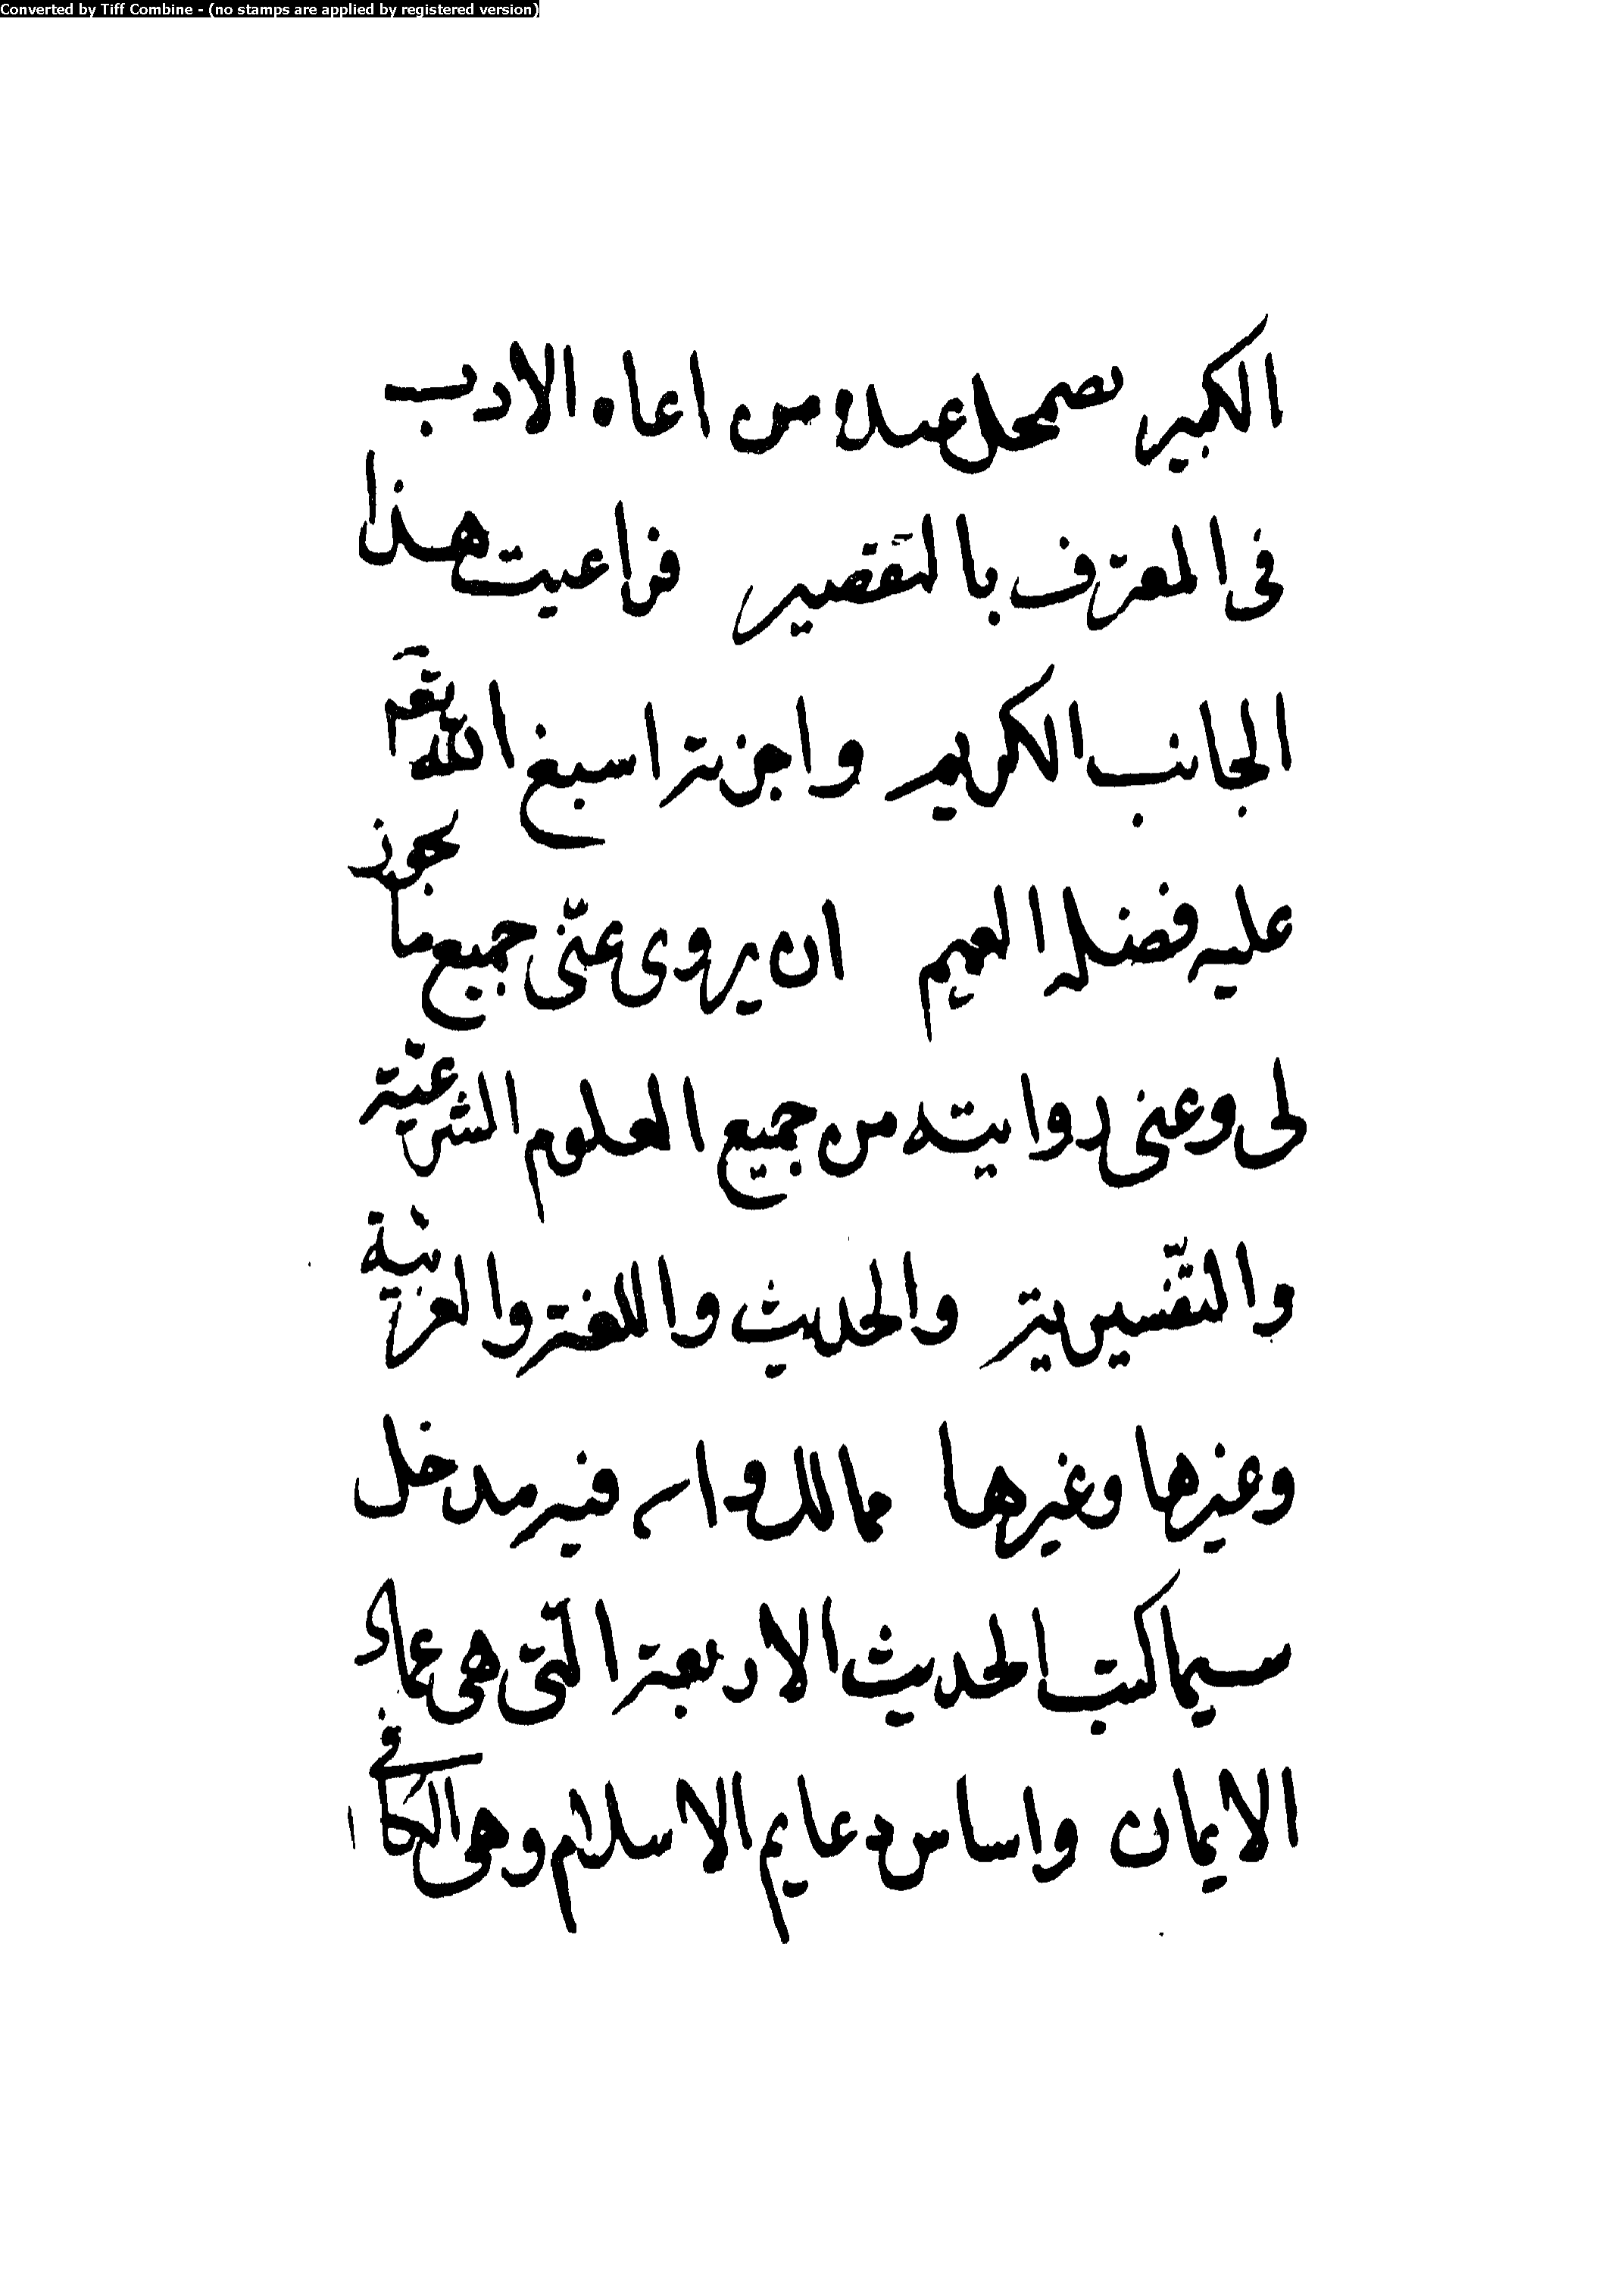 Converted by Tiff Combine - (no stamps are applied by registered version)
الكبير من الادب
فى المعرّف بالتقصير فراعيت هذا
الجانب الكريم واجزته اسبغ الله نعم
عليه فضله العميم ان يروى عنّى جميع ما يجوز
لى وعنى روايته من جميع العلوم الشرعيّة
والتفسيرية والحديث واللغة والعربيّة
وغيرها وغيرها مما للرواية فيه مدخل
سيما كتب الحديث الاربعة التى هى عماد
الايمان واساس دعايم الاسلام وهى الكافى